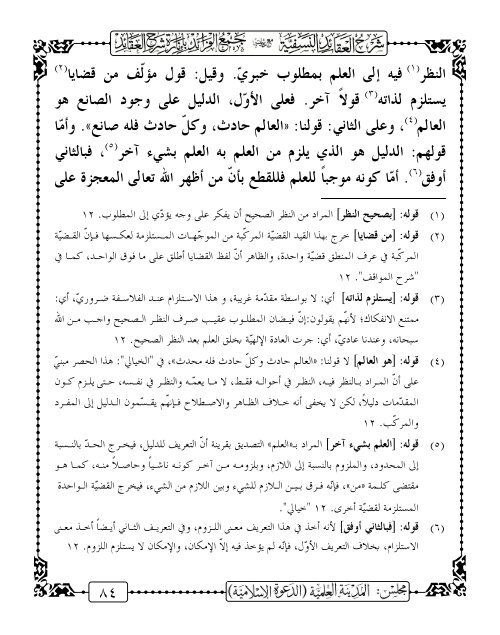 شرح العقائد النسفية مع جمع الفرائد بإنارة شرح العقائد
النظر(١) فيه إلى العلم بمطلوب خبريّ. وقيل: قول مؤلّف من قضايا(٢)
يستلزم لذاته(٣) قولاً آخر. فعلى الأوّل، الدليل على وجود الصانع هو
العالم(٤)، وعلى الثاني: قولنا: «العالم حادث، وكلّ حادث فله صانع». وأمّا
قولهم: الدليل هو الذي يلزم من العلم به العلم بشيء آخر(٥)، فبالثاني
أوفق(٦). أمّا كونه موجباً للعلم فللقطع بأنّ من أظهر الله تعالى المعجزة على
(١) قوله: [بصحيح النظر] المراد من النظر الصحيح أن يفكر على وجه يؤدّي إلى المطلوب. ١٢
(٢) قوله: [من قضايا] خرج بهذا القيد القضيّة المركبّة من الموجّهات المستلزمة لعكسها فإنّ القضيّة
المركبّة في عرف المنطق قضيّة واحدة، والظاهر أنّ لفظ القضايا أطلق على ما فوق الواحد، كما في
"شرح المواقف". ١٢
(٣) قوله: [يستلزم لذاته] أي: لا بواسطة مقدّمة غريبة، و هذا الاستلزام عند الفلاسفة ضروريّ، أي:
ممتنع الانفكاك؛ لأنّهم يقولون:إنّ فيضان المطلوب عقيب صرف النظر الصحيح واجب من الله
سبحانه، وعندنا عاديّ، أي: جرت العادة الإلهيّة بخلق العلم بعد النظر الصحيح. ١٢
(٤) قوله: [هو العالم] لا قولنا: «العالم حادث وكلّ حادث فله محدث»، في "الخيالي": هذا الحصر مبنيّ
على أنّ المراد بالنظر فيه، النظر في أحواله فقط، لا ما يعمّه والنظر في نفسه، حتى يلزم كون
المقدّمات دليلاً، لكن لا يخفى أنه خلاف الظاهر والاصطلاح فإنهم يقسّمون الدليل إلى المفرد
والمركّب. ١٢
(٥) قوله: [العلم بشيء آخر] المراد بـ«العلم» التصديق بقرينة أنّ التعريف للدليل، فيخرج الحدّ بالنسبة
إلى المحدود، والملزوم بالنسبة إلى اللازم، وبلزومه من آخر كونه ناشياً وحاصلاً منه، كما هو
مقتضى كلمة «من»، فإنّه فرق بين اللازم للشيء وبين اللازم من الشيء، فيخرج القضيّة الواحدة
المستلزمة لقضيّة أخرى. ١٢ "خيالي".
(٦) قوله: [فبالثاني أوفق] لأنه أخذ في هذا التعريف معنى اللزوم، وفي التعريف الثاني أيضاً أخذ معنى
الاستلزام، بخلاف التعريف الأوّل، فإنّه لم يؤخذ فيه إلاّ الإمكان، والإمكان لا يستلزم اللزوم. ١٢
مجلس: المدينة العلمية (الدعوة الإسلامية)
٨٤